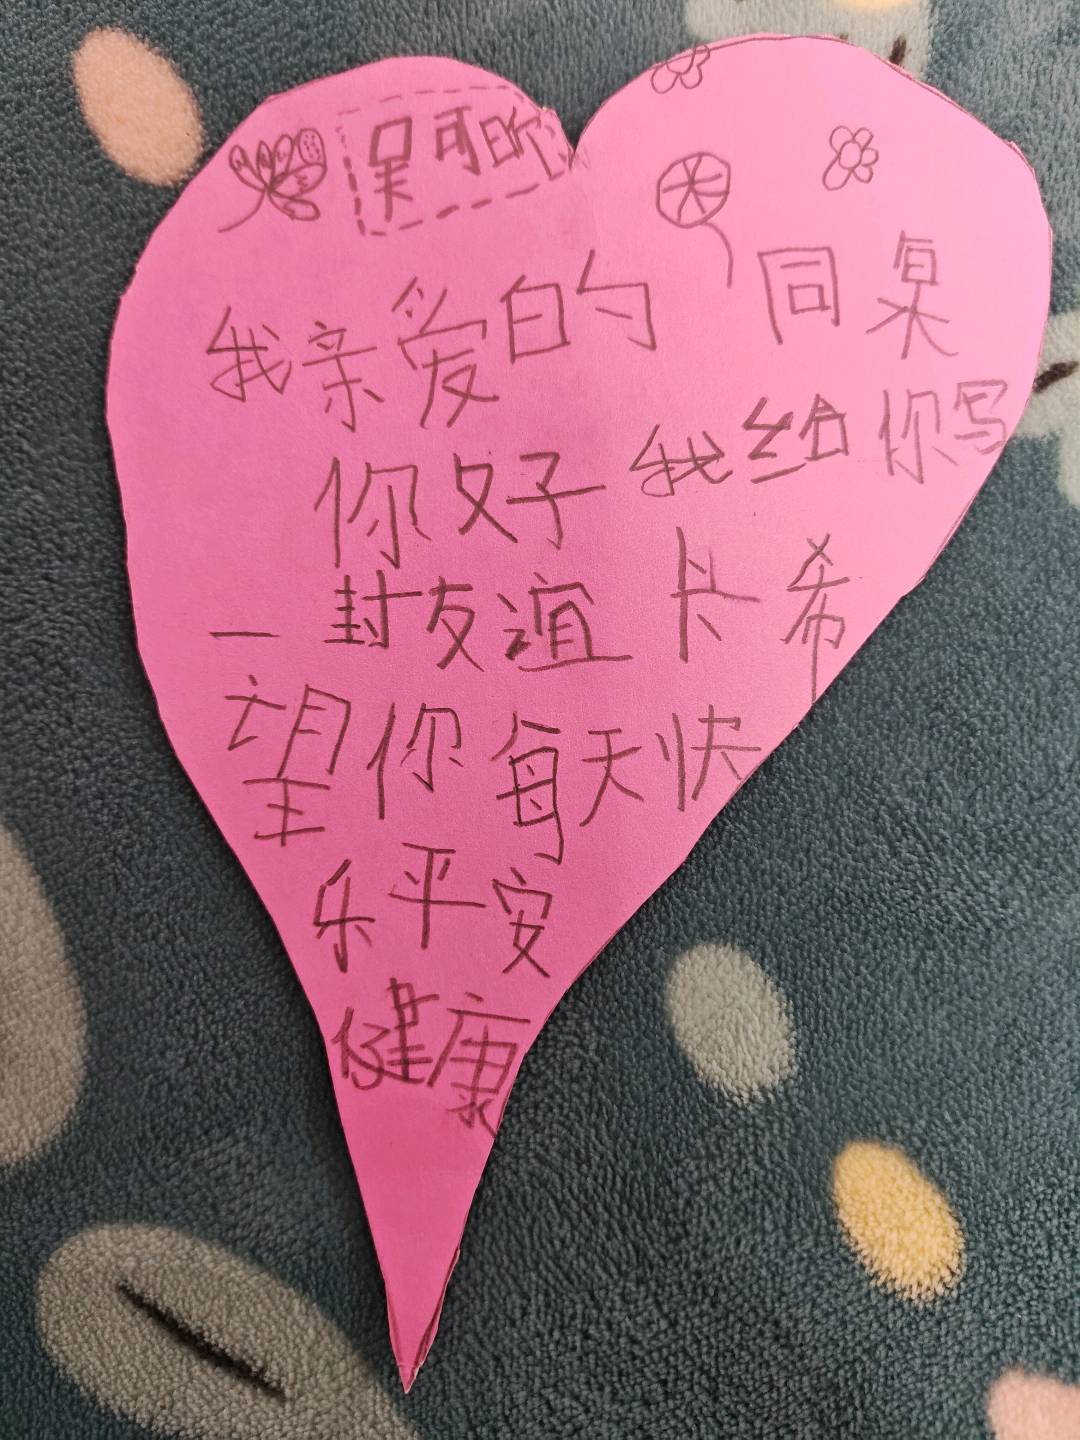 吴可昕
我亲爱的 同桌
你好 我给你写
一封友谊 卡 希
望你每天快
乐平安
健康